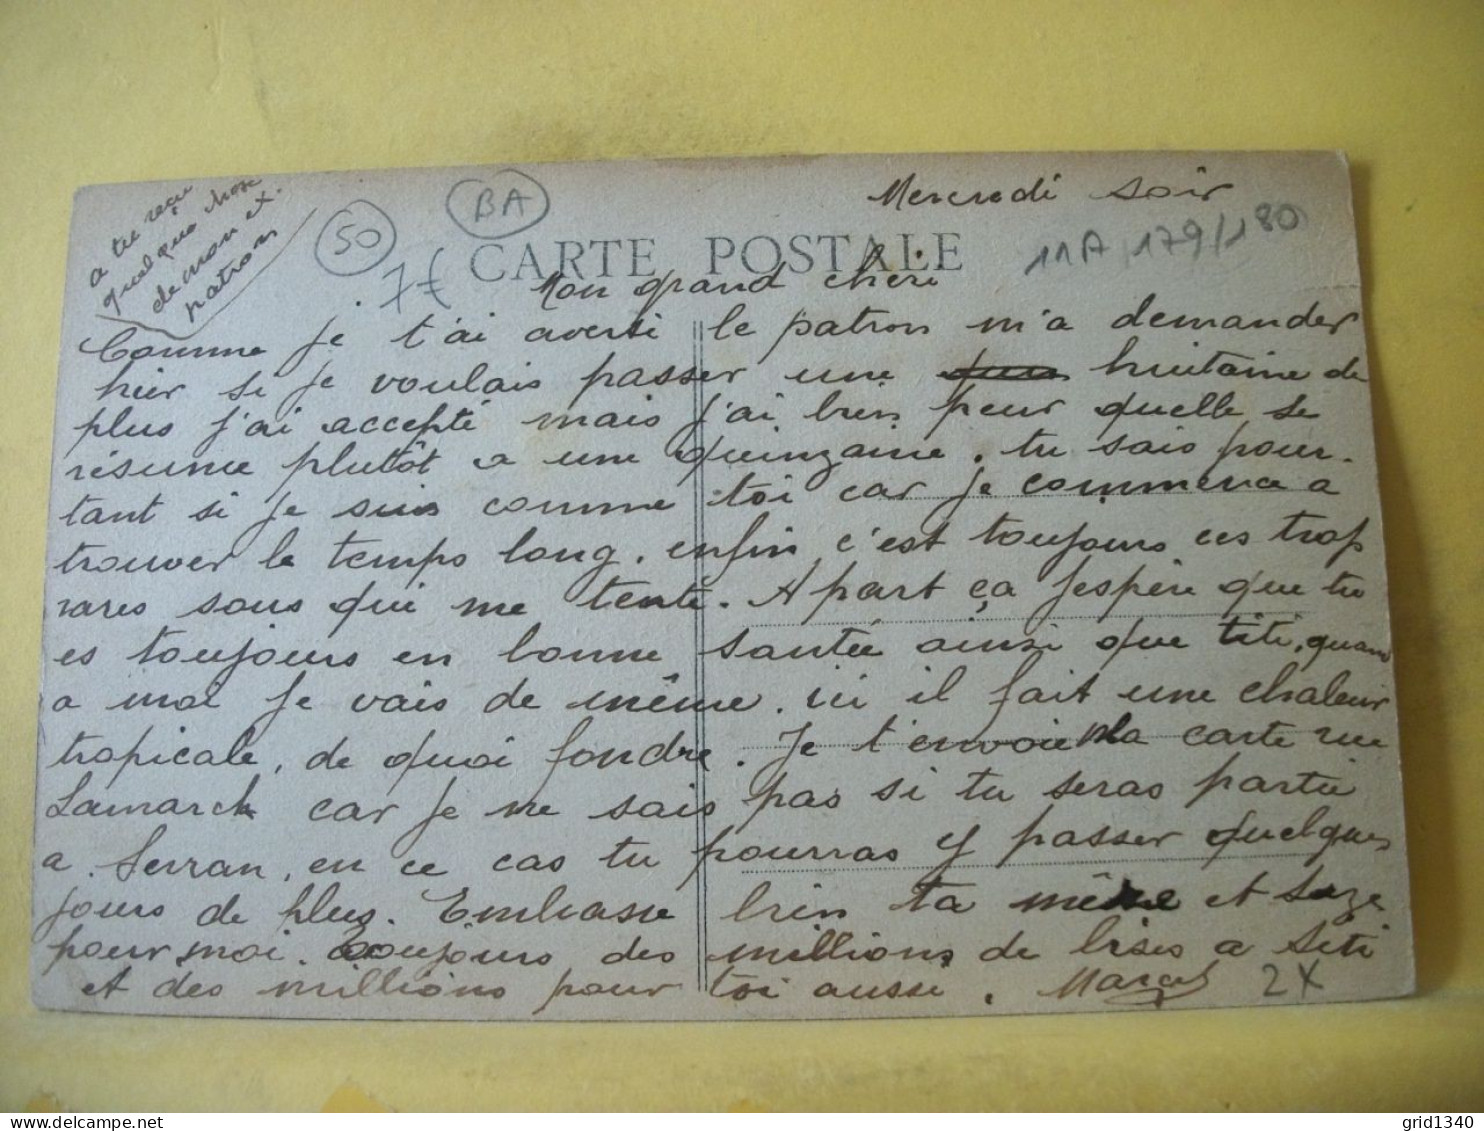 a tu reçu
quelque chose
de mon ex
patron
50
BA
7€
Mercredi soir
11A 179/180
CARTE POSTALE
Mon grand cheri
Comme je t'ai averti le patron m'a demander
hier si je voulais passer une huitaine de
plus j'ai accepté mais j'ai bien peur quelle se
résume plutôt a une quinzaine. tu sais pour-
tant si je suis comme toi car je commence a
trouver le temps long. enfin c'est toujours ces trop
rares sous qui me tente. A part ça j'espère que tu
es toujours en bonne santée ainsi que titi, quand
a moi je vais de même. ici il fait une chaleur
tropicale, de quoi fondre. Je t'envoie la carte rue
Lamarck car je ne sais pas si tu seras partie
a Serran, en ce cas tu pourras y passer quelques
jours de plus. Embrasse bien ta mère et Suze
pour moi. Toujours des millions de bises a titi
et des millions pour toi aussi. Marcel
2X
grid1340